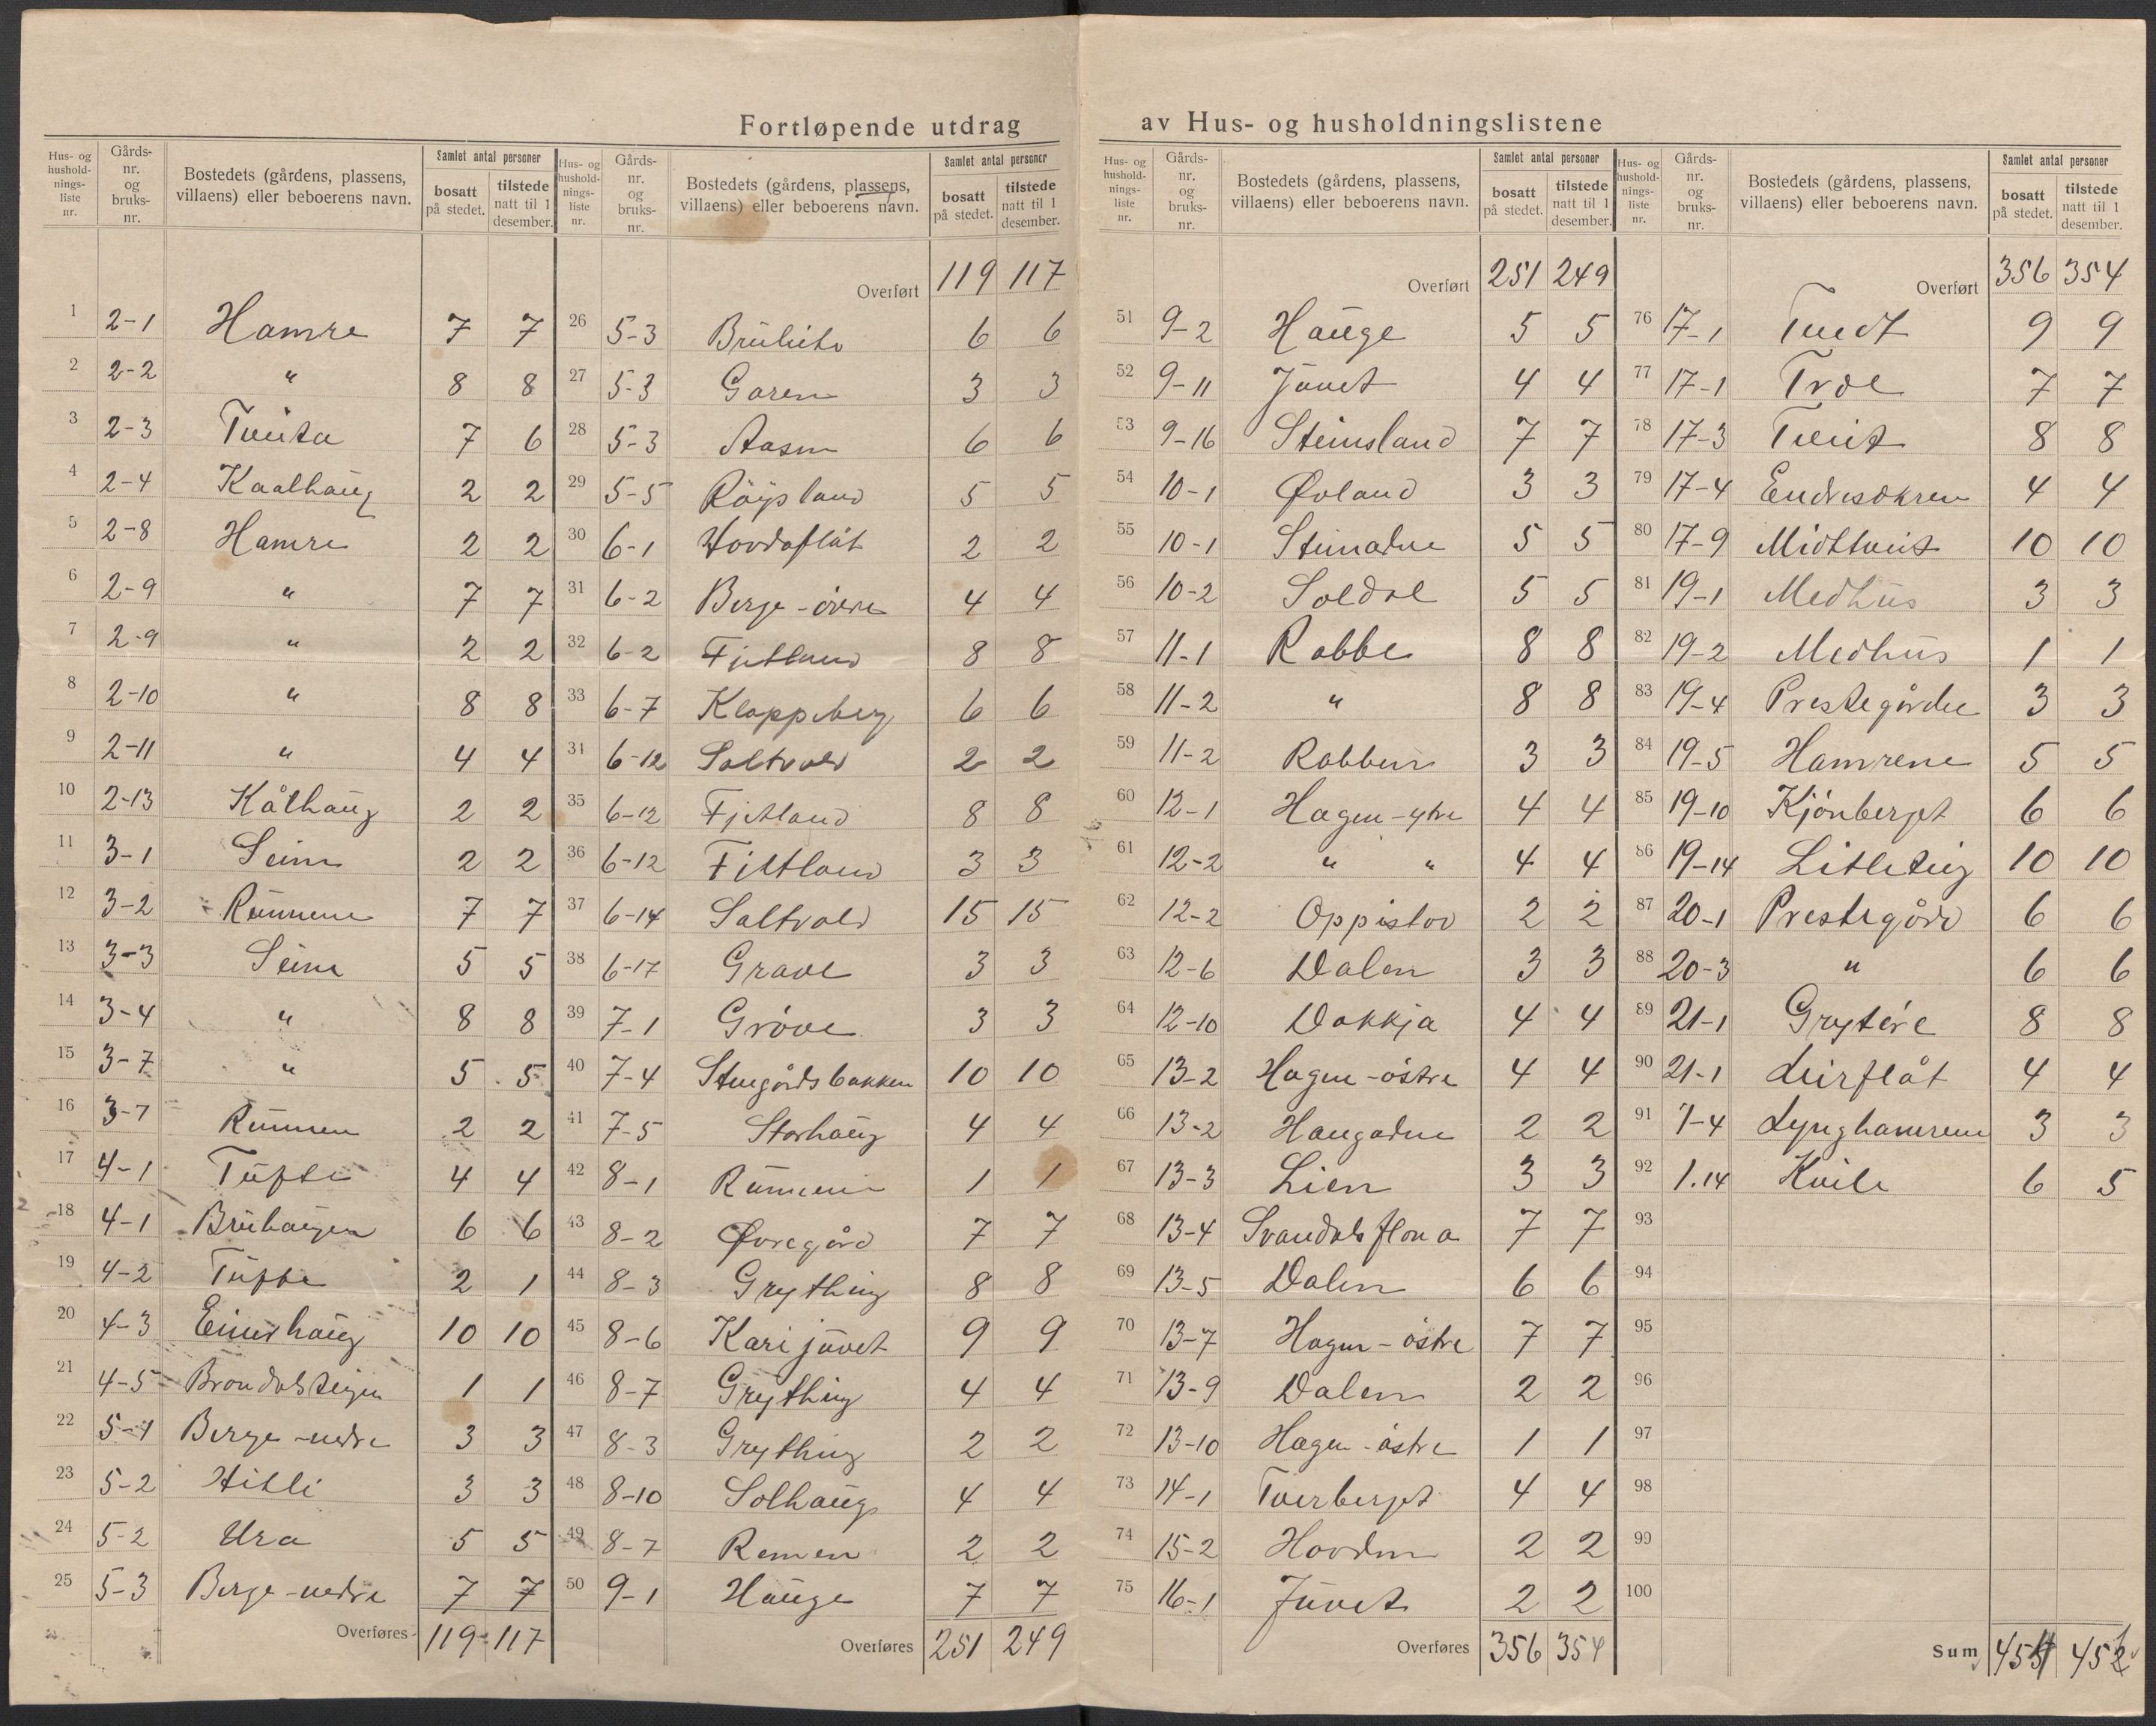 Fortløpende utdrag av Hus- og husholdningslistene
Hus- og hushold-nings-liste nr. Gårds-nr. og bruks-nr. Bostedets (gårdens, plassens, villaens) eller beboerens navn. Samlet antal personer bosatt på stedet. tilstede natt til 1 desember.
1 2-1 Hamre 7 7
2 2-2 " 8 8
3 2-3 Tveita 7 6
4 2-4 Kaalhaug 2 2
5 2-8 Hamre 2 2
6 2-9 " 7 7
7 2-9 " 2 2
8 2-10 " 8 8
9 2-11 " 4 4
10 2-13 Kålhaug 2 2
11 3-1 Seim 2 2
12 3-2 Rünnene 7 7
13 3-3 Seim 5 5
14 3-4 " 8 8
15 3-7 " 5 5
16 3-7 Rünnen 2 2
17 4-1 Tufte 4 4
18 4-1 Bruhaugen 6 6
19 4-2 Tufte 2 1
20 4-3 Einerhaug 10 10
21 4-5 Brondalsteigen 1 1
22 5-1 Berge-nedre 3 3
23 5-2 Hilli 3 3
24 5-2 Ura 5 5
25 5-3 Berge-nedre 7 7
Overføres 119 117
Hus- og hushold-nings-liste nr. Gårds-nr. og bruks-nr. Bostedets (gårdens, plassens, villaens) eller beboerens navn. Samlet antal personer bosatt på stedet. tilstede natt til 1 desember.
Overført 119 117
26 5-3 6 6
27 5-3 Garen 3 3
28 5-3 Aasen 6 6
29 5-5 Röysland 5 5
30 6-1 Hovdaflåt 2 2
31 6-2 Berge-övre 4 4
32 6-2 Fjetland 8 8
33 6-7 Kloppeberg 6 6
34 6-12 Saltvold 2 2
35 6-12 Fjetland 8 8
36 6-12 Fjetland 3 3
37 6-14 Saltvold 15 15
38 6-17 Grave 3 3
39 7-1 Gröve 3 3
40 7-4 Stengårdsbakken 10 10
41 7-5 Storhaug 4 4
42 8-1 Rünnene 1 1
43 8-2 Øvregård 7 7
44 8-3 Grything 8 8
45 8-6 Karijuvet 9 9
46 8-7 Grything 4 4
47 8-3 Grything 2 2
48 8-10 Solhaug 4 4
49 8-7 Remen 2 2
50 9-1 Hauge 7 7
Overføres 251 249
Hus- og hushold-nings-liste nr. Gårds-nr. og bruks-nr. Bostedets (gårdens, plassens, villaens) eller beboerens navn. Samlet antal personer bosatt på stedet. tilstede natt til 1 desember.
Overført 251 249
51 9-2 Hauge 5 5
52 9-11 Juvet 4 4
53 9-16 Steinsland 7 7
54 10-1 Øvland 3 3
55 10-1 Steinadne 5 5
56 10-2 Soldal 5 5
57 11-1 Rabbe 8 8
58 11-2 " 8 8
59 11-2 Rabben 3 3
60 12-1 Hagen-ytre 4 4
61 12-2 " " 4 4
62 12-2 Oppistov 2 2
63 12-6 Dalen 3 3
64 12-10 Dokkja 4 4
65 13-2 Hagen-östre 4 4
66 13-2 Haugadne 2 2
67 13-3 Lien 3 3
68 13-4 Svandalsflona 7 7
69 13-5 Dalen 6 6
70 13-7 Hagen-östre 7 7
71 13-9 Dalen 2 2
72 13-10 Hagen-östre 1 1
73 14-1 Tverberget 4 4
74 15-2 Hovden 2 2
75 16-1 Juvet 2 2
Overføres 356 354
Hus- og hushold-nings-liste nr. Gårds-nr. og bruks-nr. Bostedets (gårdens, plassens, villaens) eller beboerens navn. Samlet antal personer bosatt på stedet. tilstede natt til 1 desember.
Overført 356 354
76 17-1 Tveit 9 9
77 17-1 Troe 7 7
78 17-3 Tveit 8 8
79 17-4 Endresåkren 4 4
80 17-9 Midttveit 10 10
81 19-1 Medhus 3 3
82 19-2 Medhus 1 1
83 19-4 Prestegården 3 3
84 19-5 Hamrene 5 5
85 19-10 Kjönberget 6 6
86 19-14 Litleteig 10 10
87 20-1 Prestegård 6 6
88 20-3 " 6 6
89 21-1 Grytöre 8 8
90 21-1 Leirflåt 4 4
91 1-4 Lynghamrene 3 3
92 1.14 Kvile 6 5
93
94
95
96
97
98
99
100
Sum 455 452